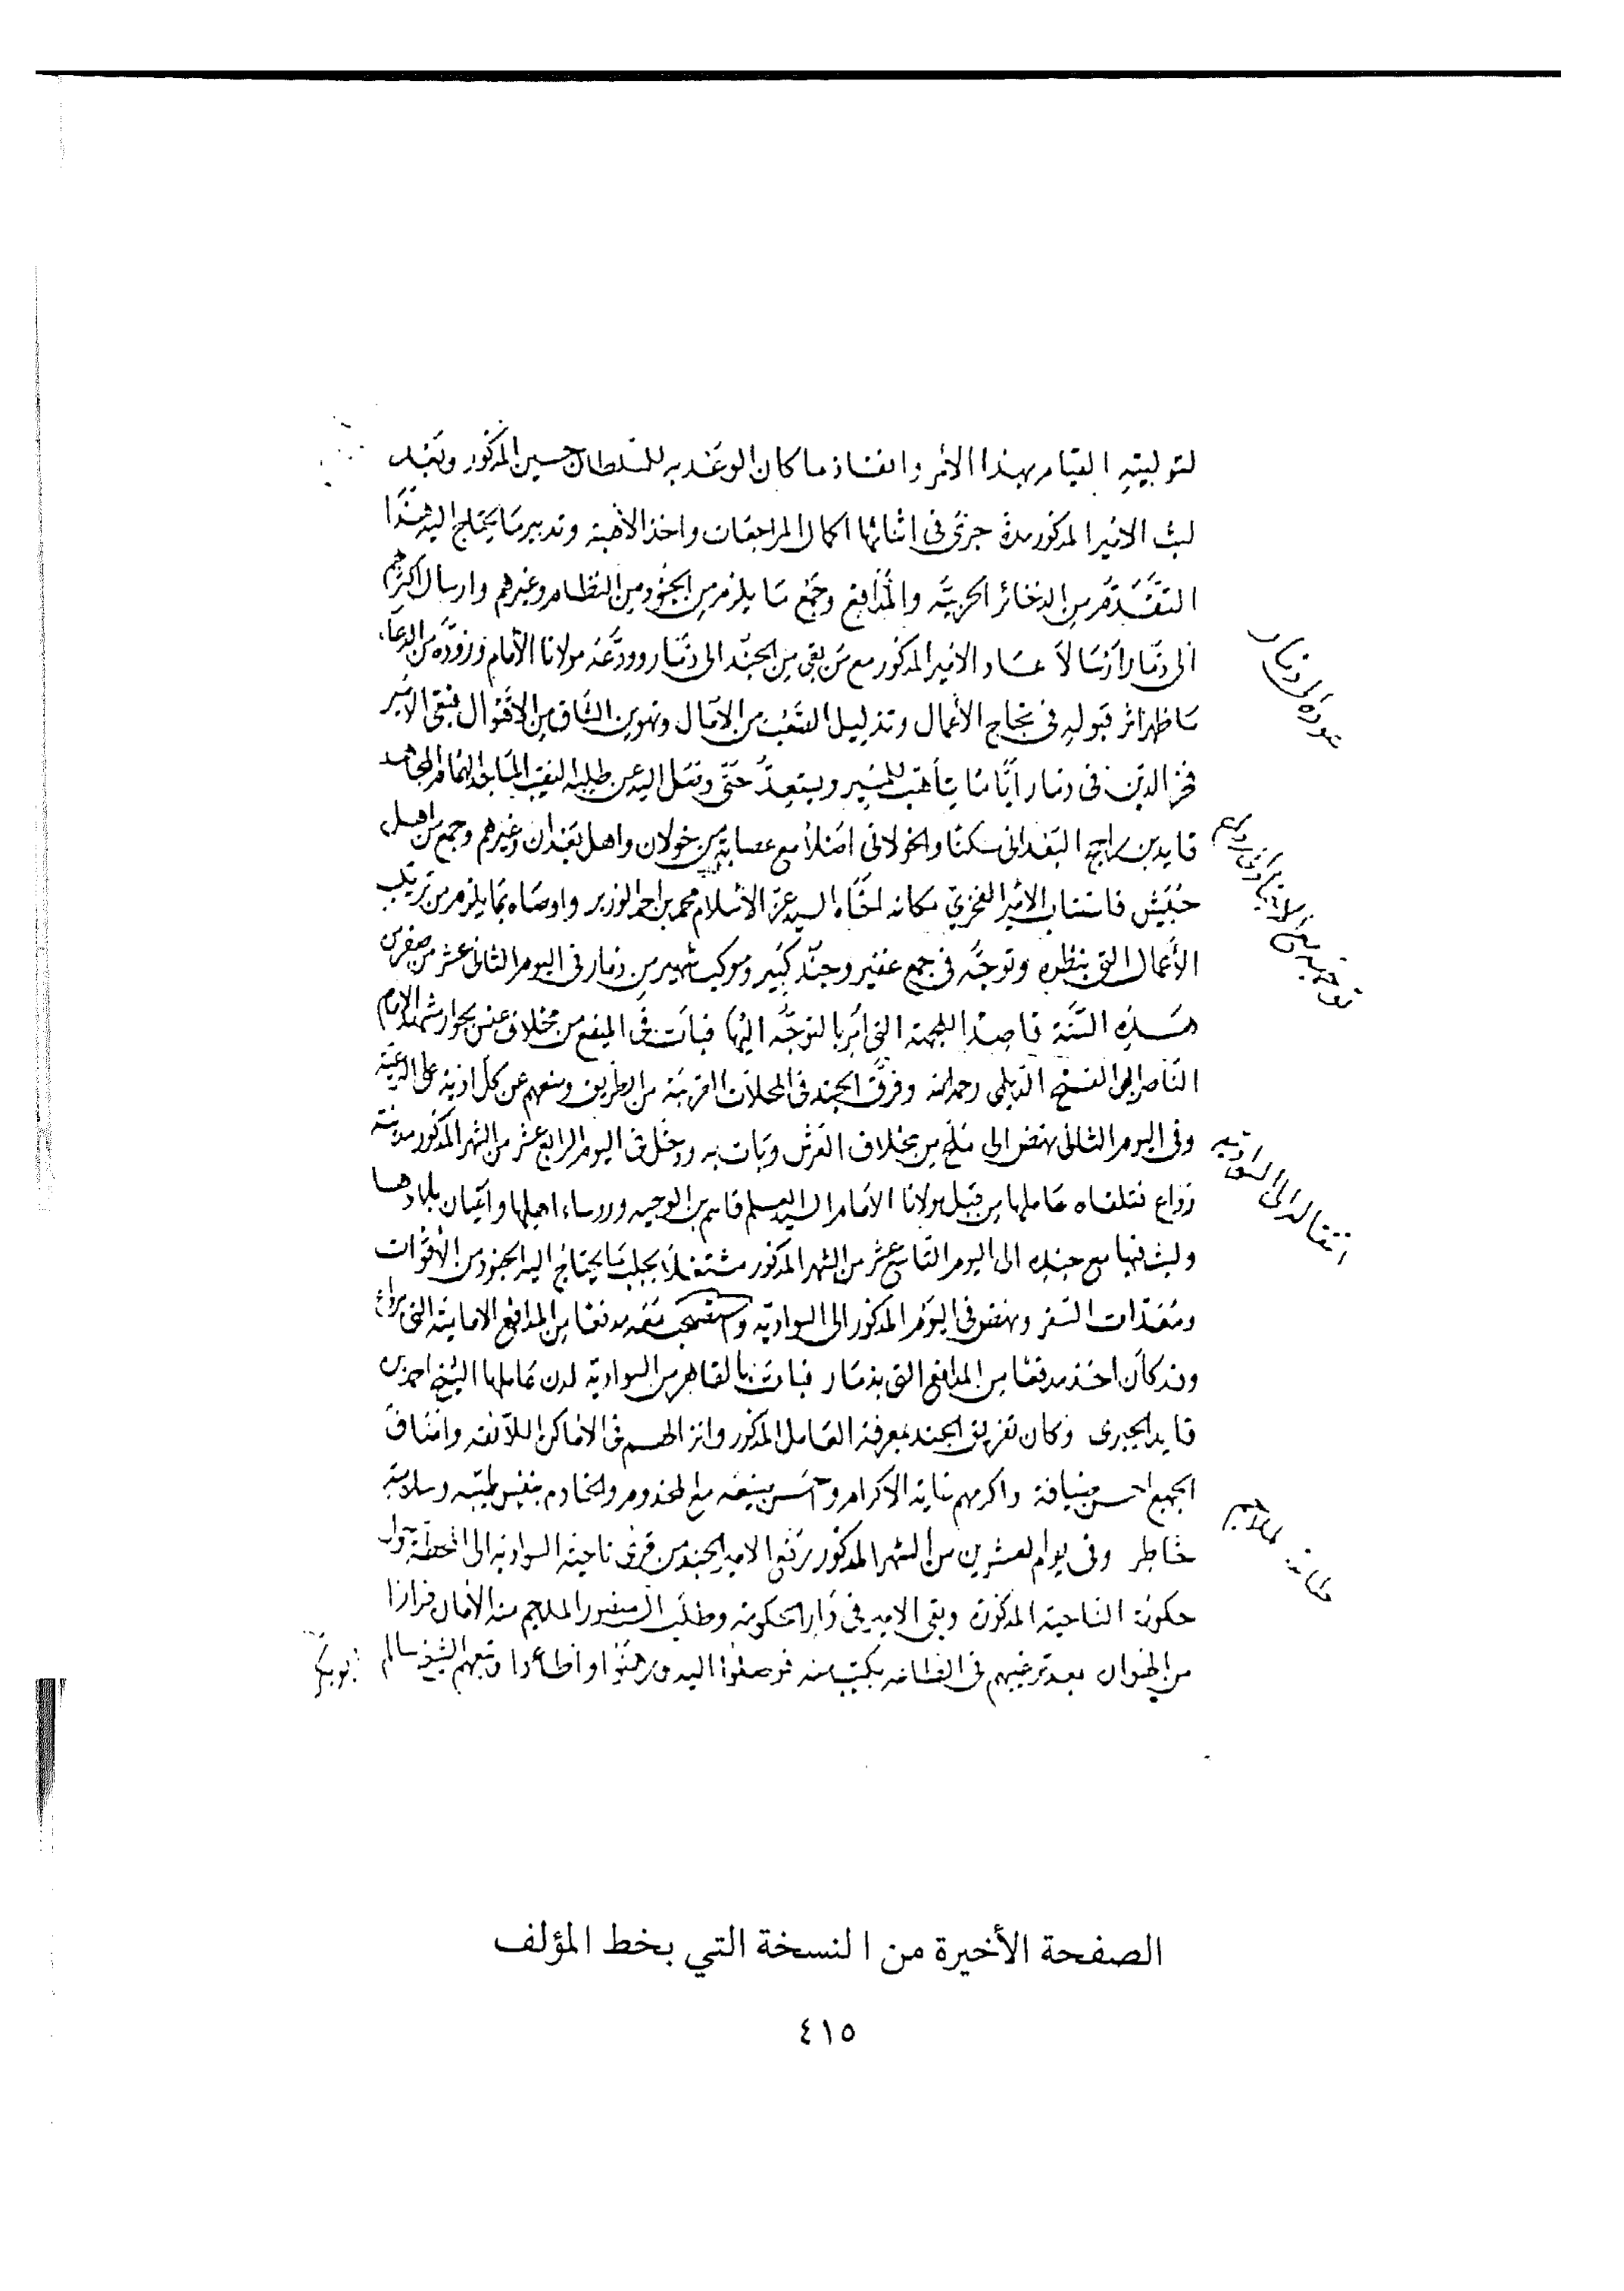 لتوليته القيام بهذا الأمر وانفاذ ما كان الوعد به للسلطان حسين المذكور وبعد
لبث الامير المذكور مدة جرى في اثنائها اكمال المراجعات واخذ الأهبة وتدبير ما يحتاج اليه هذا
التقدم من الذخائر الحربيّة والمدافع وجمع ما يلزم من الجنود من النظام وغيرهم وارسال اكثرهم
الى ذمار ارسالا عاد الامير المذكور مع من بقى من الجند الى ذمار وودّعه مولانا الأمام وزوّده من الدعاء
ما ظهر اثر قبوله في نجاح الأعمال وتذليل الصعب من الآمال وتهوين الشاق من الاقوال فبقى الامير
فخر الدين في ذمار أيّاما يتأهب للمسير ويستعدّ حتّى وصل اليه عن طلبه النقيب الماجد الهمام المجاهد
قايد بن راجح البغدانى سكنا والخولاني اصلا مع عصابة من خولان واهل بعدان وغيرهم وجمع من اهل
حبيش فاستناب الأمير الفخري مكانه اخاه السيد عز الأسلام محمد بن احمد الوزير واوصاه بما يلزم من ترتيب
الأعمال التي بنظره وتوجّه في جمع غفير وجند كبير وموكب شهير من ذمار في اليوم الثانى عشر من صفر من
هذه السّنة قاصدا للجهة التي أمر بالتوجّه اليها فبات في الميفع من مخلاف عنس بجوار مشهد الامام
الناصر ابى الفتح الديلمي رحمه الله وفرّق الجند في المحلات القريبة من الطريق ومنعهم عن كل اذية على الرعيّة
وفى اليوم الثانى نهض الى ملح من مخلاف العرش وبات به ودخل في اليوم الرابع عشر من الشهر المذكور مدينة
رداع فتلقاه عاملها من قبل مولانا الامام السيد العلم قاسم بن الوجيه ورؤساء اهلها واعيان بلادها
ولبث فيها مع جنده الى اليوم التاسع عشر من الشهر المذكور مشتغلا بجلب ما يحتاج اليه الجنود من الأقوات
ومعدّات السفر ونهض في اليوم المذكور الى السواديّة واستصحب معه مدفعا من المدافع الاماميّة التي برداع
وقد كان اخذ مدفعا من المدافع التي بذمار فبات بالقاهر من السواديّة لدن عاملها الشيخ احمد بن
قايد الجبرى وكان تفريق الجند بمعرفة العامل المذكور وانزالهم في الاماكن اللآئقة واضاف
الجميع احسن ضيافة واكرمهم غاية الاكرام وحسن صنيعه مع المخدوم والخادم بنفس طيّبة وسلامة
خاطر وفى يوم العشرين من الشهر المذكور رفع الامير الجند من قرى ناحية السوادية الى المحطّة حول
حكومة الناحية المذكورة وبقى الامير في دار الحكومة وطلب آل منصور الملاجم منه الأمان فرارا
من الهوان بعد ترغيبهم في الطاعة بكتب منه فوصلوا اليه ورهنوا واطاعوا وتبعهم الشيخ سالم
ابو بكر
عوده الى ذمار
انتقاله الى السوادية
طاعة الملاجم
الصفحة الأخيرة من النسخة التي بخط المؤلف
٤١٥